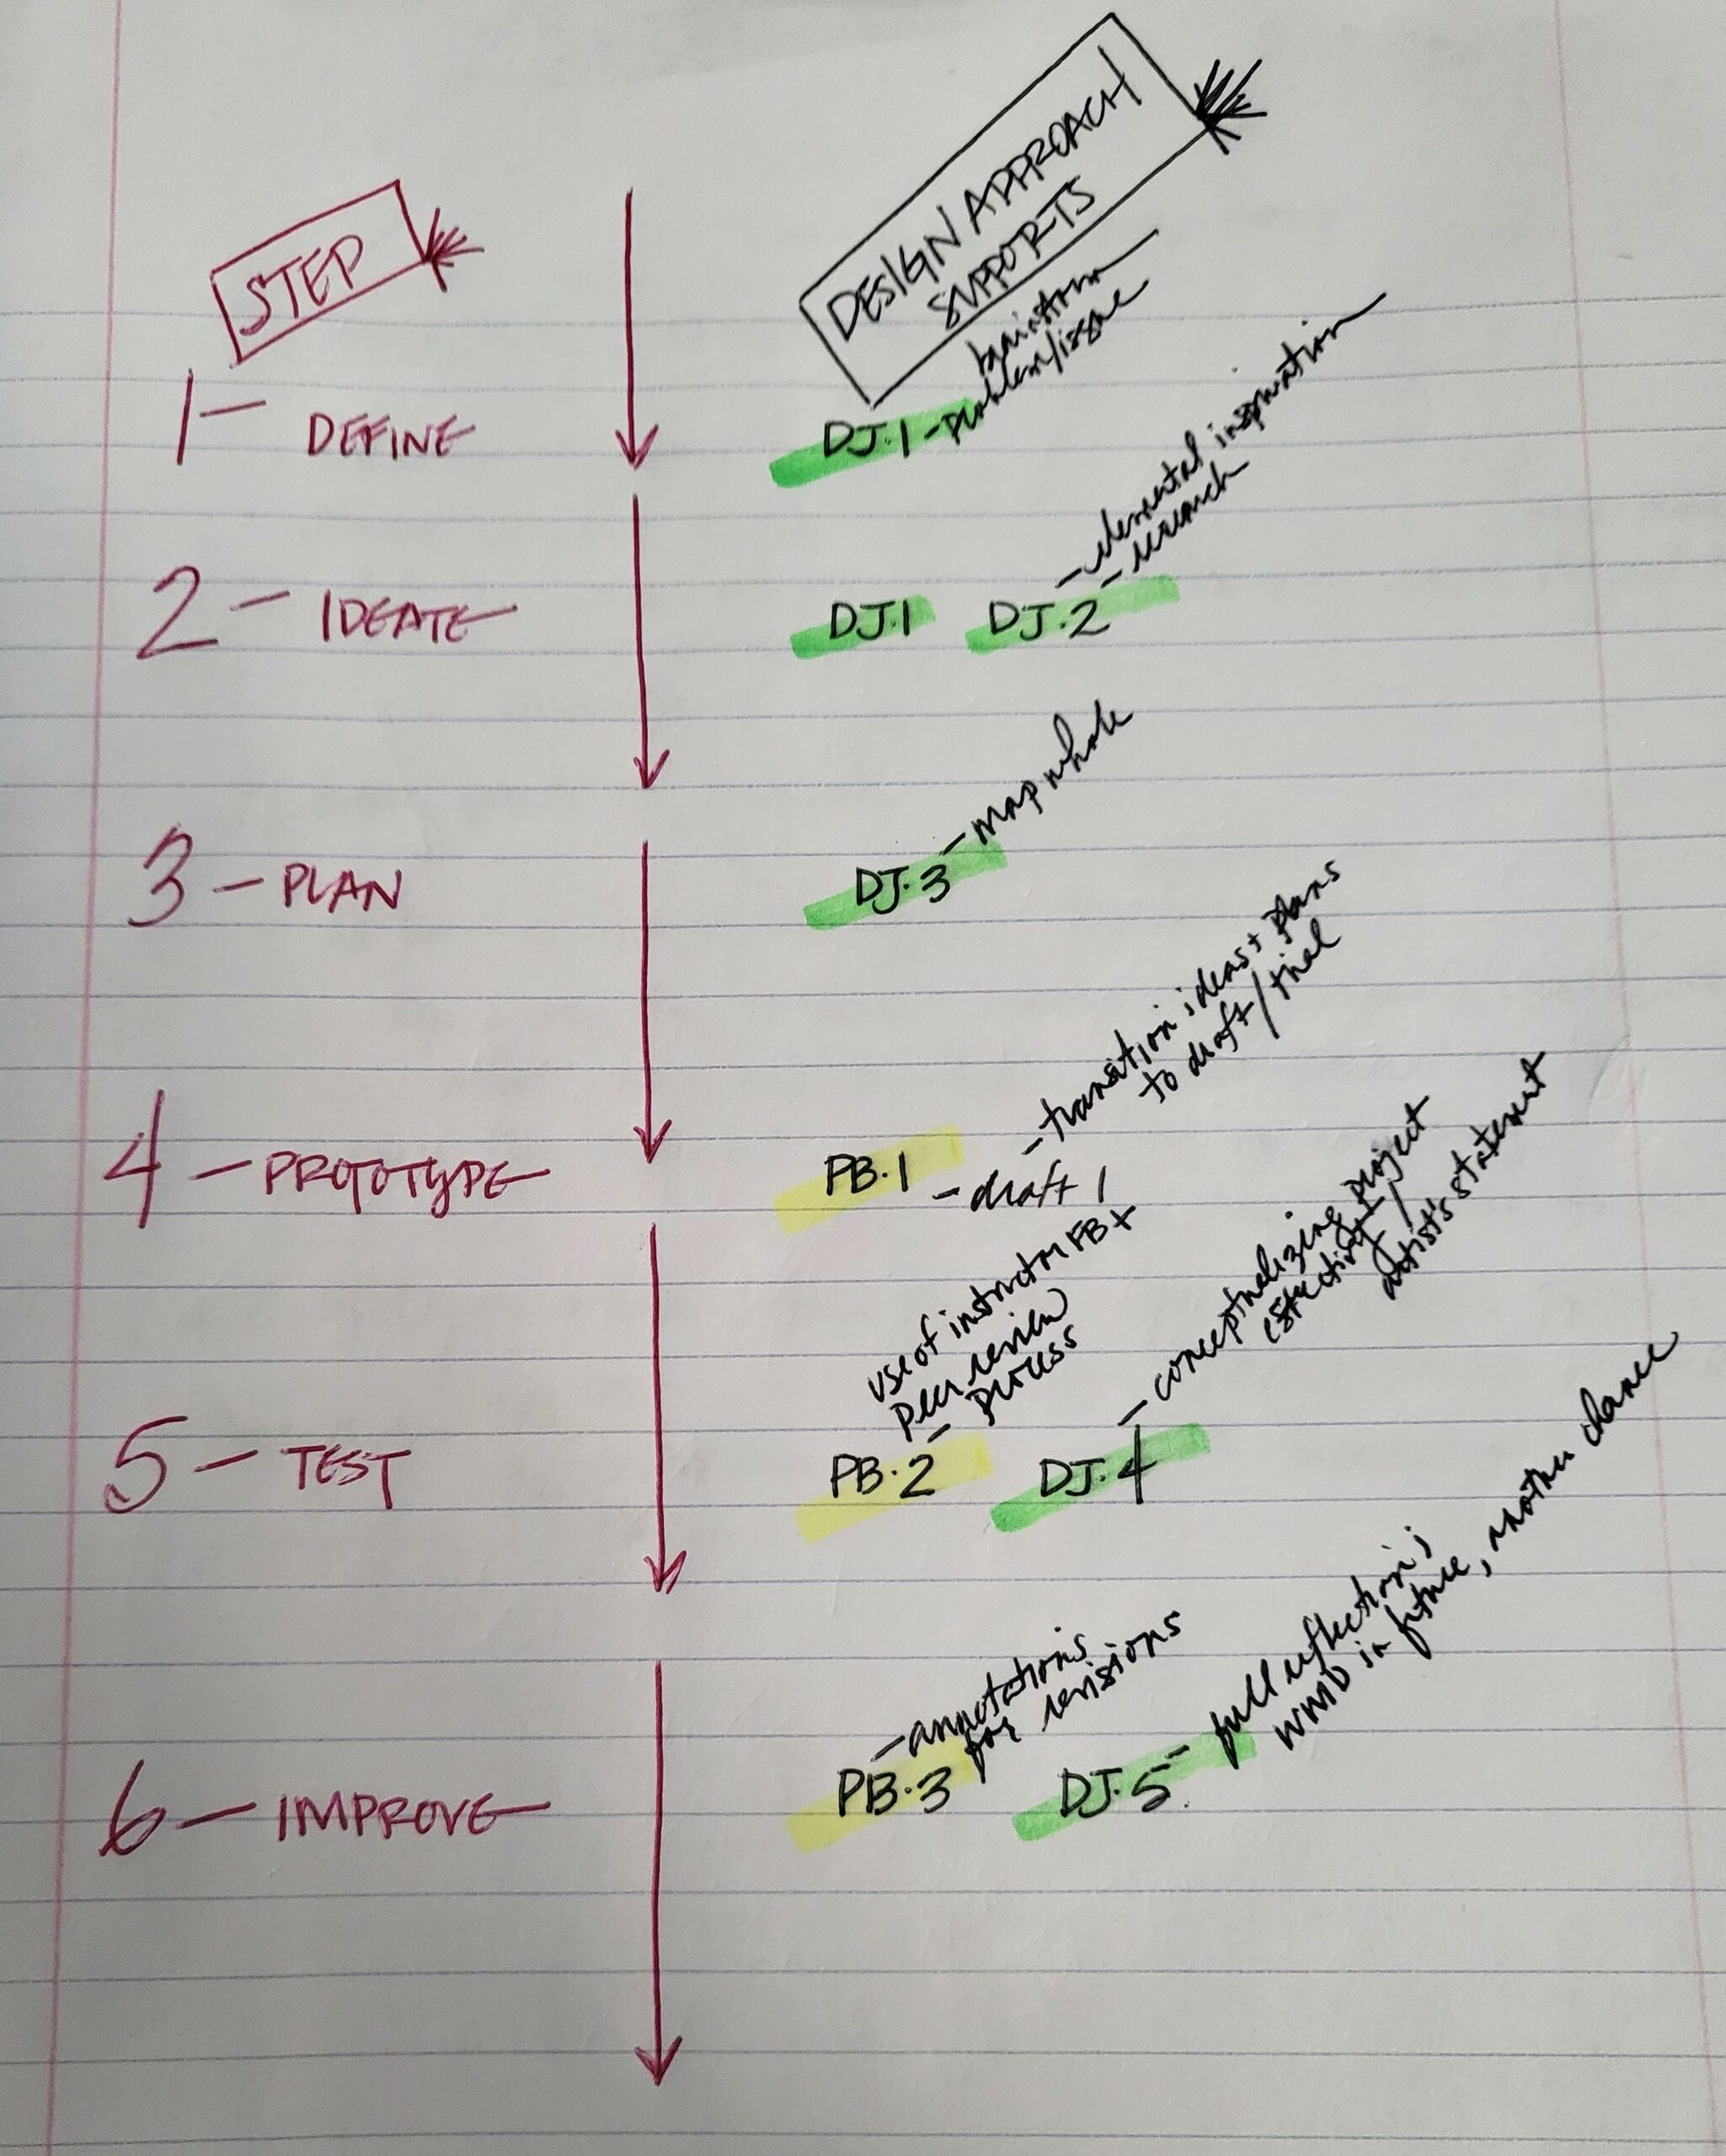 STEP
DESIGN APPROACH
SUPPORTS
1 - DEFINE
DJ.1 - brainstorm
problem/issue
2 - IDEATE
DJ.1
DJ.2
- elemental inspiration
- research
3 - PLAN
DJ.3 - map whole
4 - PROTOTYPE
PB.1
- transition ideas + plans
to draft/trial
- draft 1
5 - TEST
PB.2 -
use of instructor FB +
peer review
process
DJ.4
- conceptualizing project
artist's statement
6 - IMPROVE
PB.3
- annotations
for revisions
DJ.5 - full reflection;
WMD in future, another chance